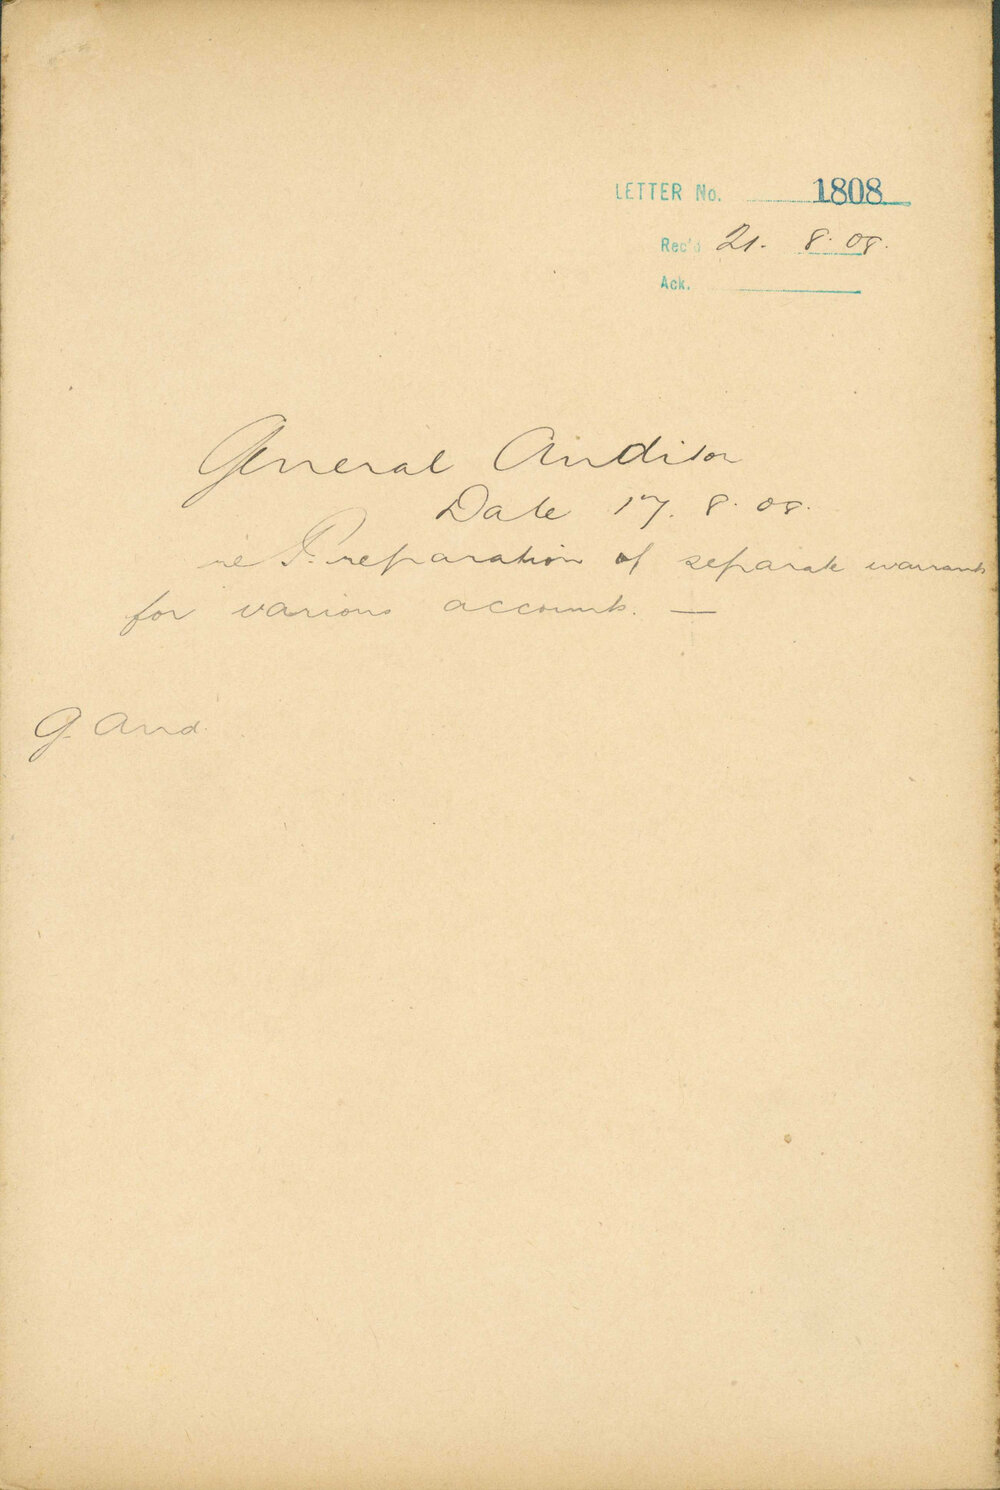 LETTER No. 1808
Rec'd 21. 8. 08.
Ack.
General Auditor
Date 17. 8. 08.
re Preparation of separate warrants
for various accounts. —
G. Aud.